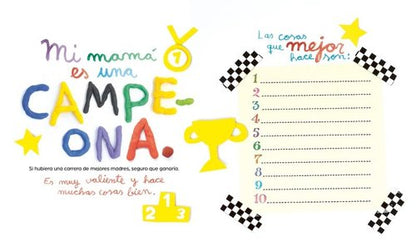 Mi mamá
es una
CAMPE-
ONA.
Si hubiera una carrera de mejores madres, seguro que ganaría.
Es muy valiente y hace
muchas cosas bien.
1
1
2
3
Las cosas
que mejor
hace son:
1
2
3
4
5
6
7
8
9
10